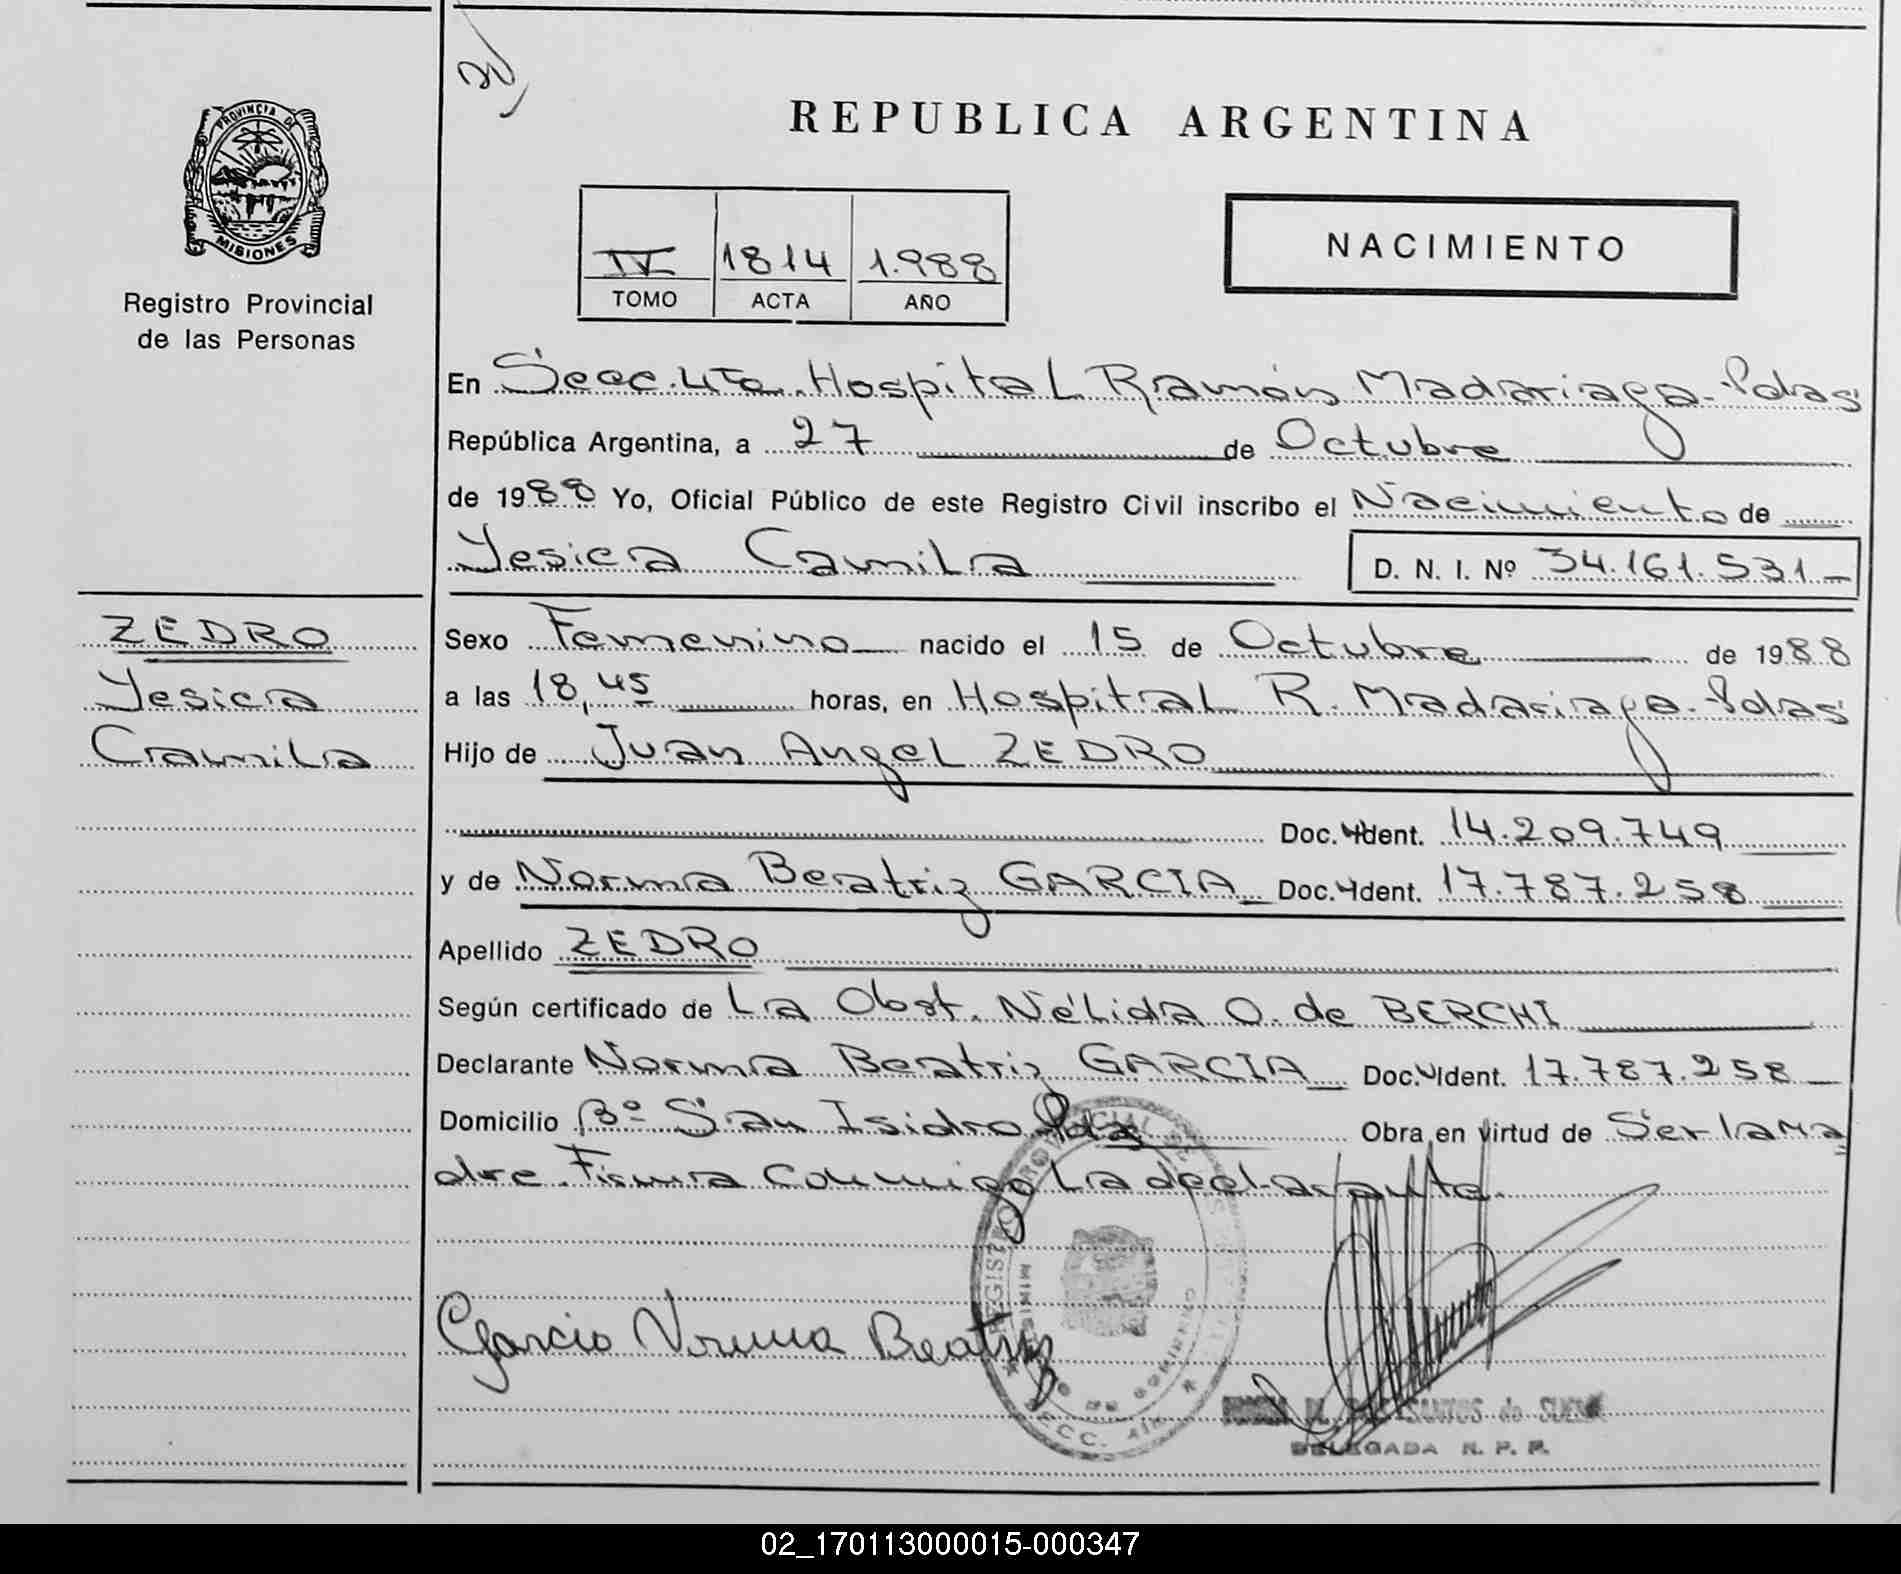 PROVINCIA DE
MISIONES
Registro Provincial
de las Personas
REPUBLICA ARGENTINA
IV 1814 1.988
TOMO ACTA AÑO
NACIMIENTO
En Secc. 4ta. Hospital Ramón Madariaga-Pdas
República Argentina, a 27 de Octubre
de 1988 Yo, Oficial Público de este Registro Civil inscribo el Nacimiento de
Yesica Camila D. N. I. Nº 34.161.531
ZEDRO
Yesica
Camila
Sexo Femenino nacido el 15 de Octubre de 1988
a las 18,45 horas, en Hospital R. Madariaga-Pdas
Hijo de Juan Angel ZEDRO
Doc. Ident. 14.209.749
y de Norma Beatriz GARCIA Doc. Ident. 17.787.258
Apellido ZEDRO
Según certificado de La Obst. Nélida O. de BERCHI
Declarante Norma Beatriz GARCIA Doc. Ident. 17.787.258
Domicilio Bº San Isidro Pdas Obra en virtud de Ser la ma
dre. Firma conmigo la declarante.
Garcia Norma Beatriz
SANTOS de
DELEGADA R. P. P.
02_170113000015-000347